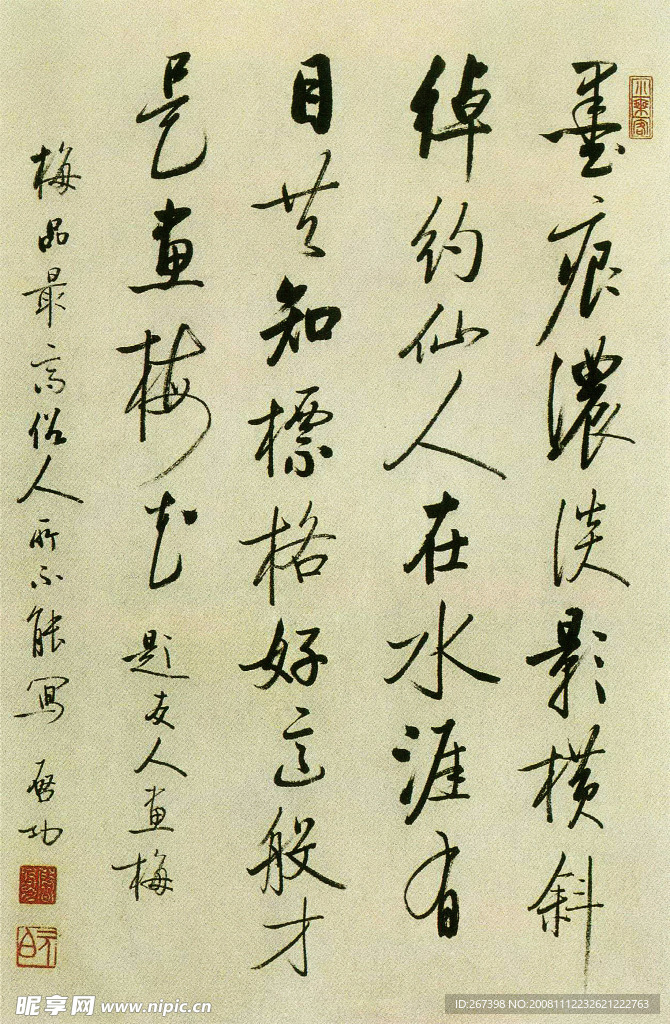 墨痕濃淡影橫斜
綽約仙人在水涯有
目共知標格好這般才
是畫梅花
題友人畫梅
梅品最高俗人所不能寫
啓功
昵享网 www.nipic.cn
ID:267398 NO:20081112232621222763